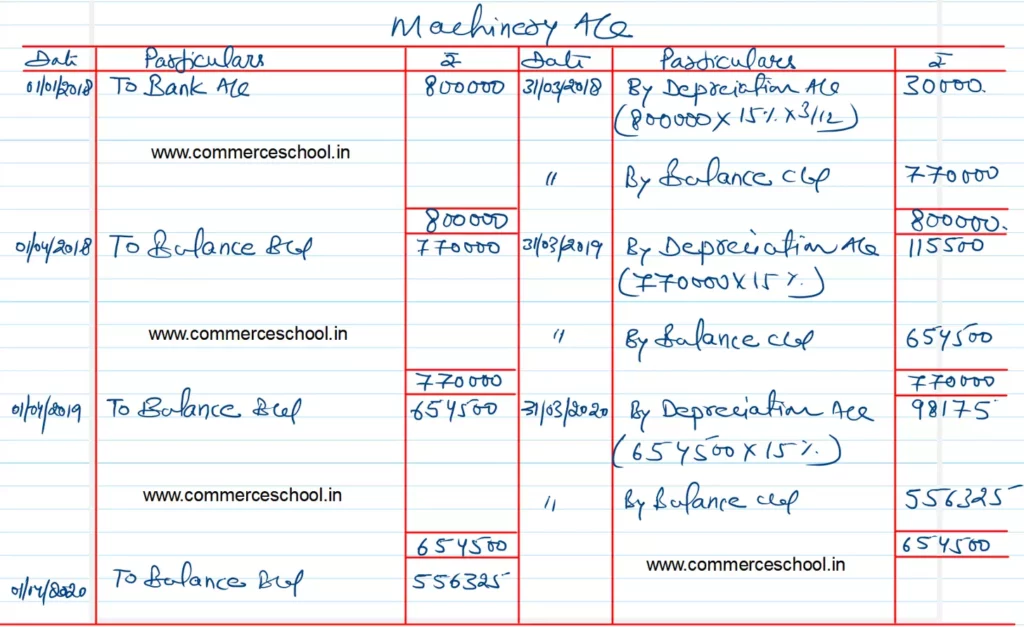 Machinery A/c
Date Particulars ₹ Date Particulars ₹
01/01/2018 To Bank A/c 800000 31/03/2018 By Depreciation A/c 30000.
(800000 X 15% X 3/12)
www.commerceschool.in
" By Balance c/d 770000
800000 800000.
01/04/2018 To Balance B/d 770000 31/03/2019 By Depreciation A/c 115500
(770000 X 15%.)
www.commerceschool.in
" By Balance c/d 654500
770000 770000
01/04/2019 To Balance B/d 654500 31/03/2020 By Depreciation A/c 98175
(654500 X 15%.)
www.commerceschool.in
" By Balance c/d 556325
654500 654500
www.commerceschool.in
01/04/2020 To Balance B/d 556325